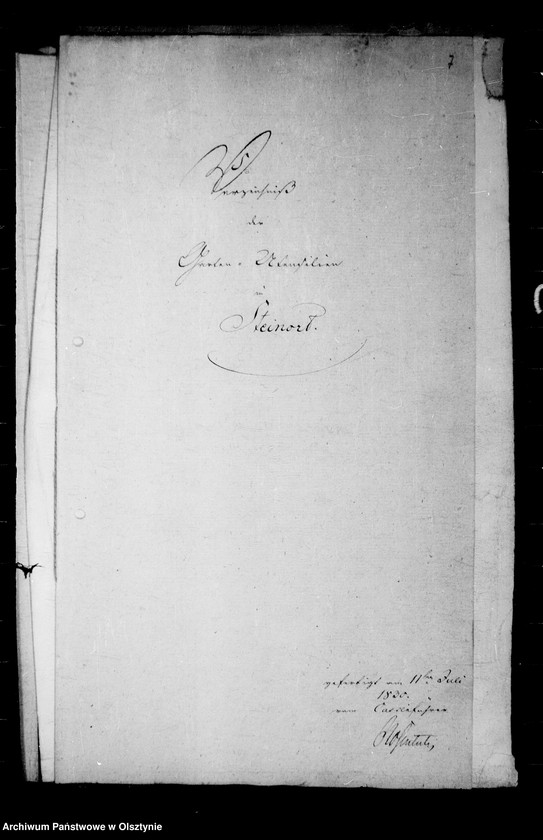 7
Verzeichniß
der
Garten-Utensilien
in
Steinort.
gefertigt am 11ten Juli
1830.
vom
Archiwum Państwowe w Olsztynie